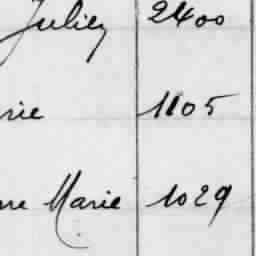 Julien 2400
rie 1105
ne Marie 1029